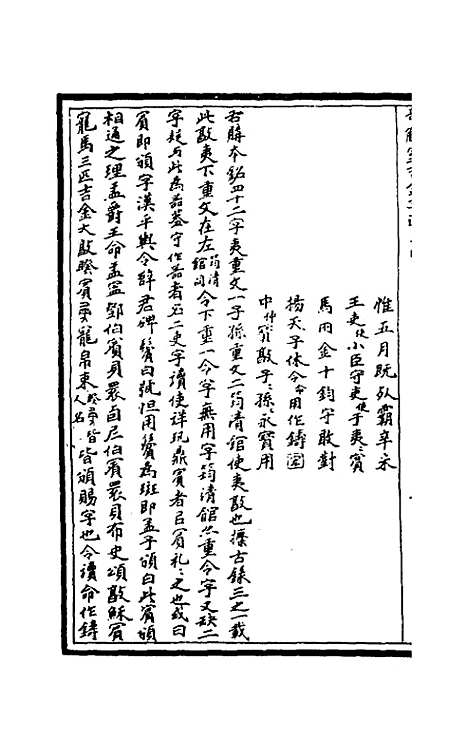 惟五月既死霸辛未
王吏使小臣守吏使于夷夷賓
馬兩金十鈞守敢對
揚天子休令命用作鑄
中仲寶敦子孫永寶用
右賸本銘四十二字夷重文一子孫重文二筠清館使夷敦也攈古錄三之一載
此敦夷下重文在左筠清館同今下重一令字無用字筠清館亦重令字又缺二
字疑与此為器蓋守作器者名二吏字讀使詳玩鼎賓者以賓礼之也或曰
賓即頒字漢平輿令薛君碑鬢白號但用鬢為斑即孟子頒白此賓頒
相通之理盂爵王命盂寧鄧伯賓貝睘卣尸伯賓睘貝布史頌敦穌賓
寵馬三匹吉金大敦睽賓龍帛束睽人名皆頒賜字也令讀命作鑄